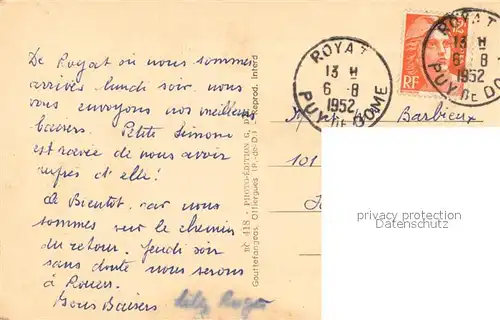 De Royat où nous sommes
arrivés lundi soir nous
vous envoyons nos meilleurs
baisers. Petite Simone
est ravie de nous avoir
auprès d'elle!
A Bientôt car nous
sommes sur le chemin
du retour. Jeudi soir
sans doute nous serons
à Rouen.
Bons Baisers
Roger
N° 418 - PHOTO-ÉDITION G.
Reprod. Interd
Gouttefangeas, Olliergues (P.-de-D.)
ROYAT
13 H
6 - 8
1952
PUY DE DOME
RF
ROYAT
13 H
6 - 8
1952
PUY DE DO
Barbieux
101
privacy protection
Datenschutz